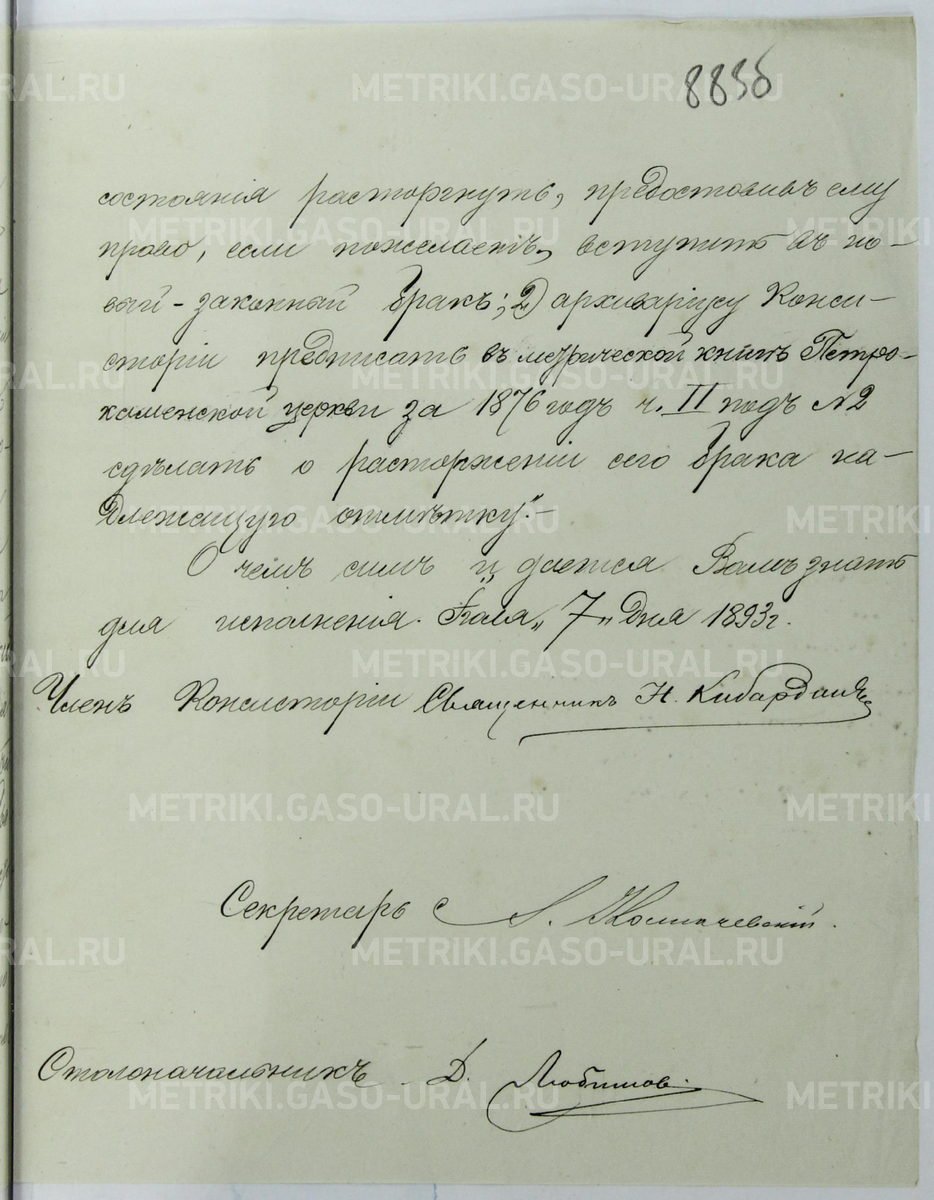 883б
состоянія расторгнуть, предоставивъ ему
право, если пожелаетъ, вступить въ но-
вый - законный бракъ; 2) архиваріусу Конси-
сторіи предписать въ метрической книгѣ Петро-
каменской церкви за 1876 годъ ч. II подъ №2
сдѣлать о расторженіи сего брака на-
длежащую отмѣтку".-
О чемъ симъ и дается Вамъ знать
для исполненія. Іюля „7" дня 1893 г.
Членъ Консисторіи Священникъ Н. Кибардинъ
Секретарь А.
Столоначальникъ Д. Любимов.
METRIKI.GASO-URAL.RU